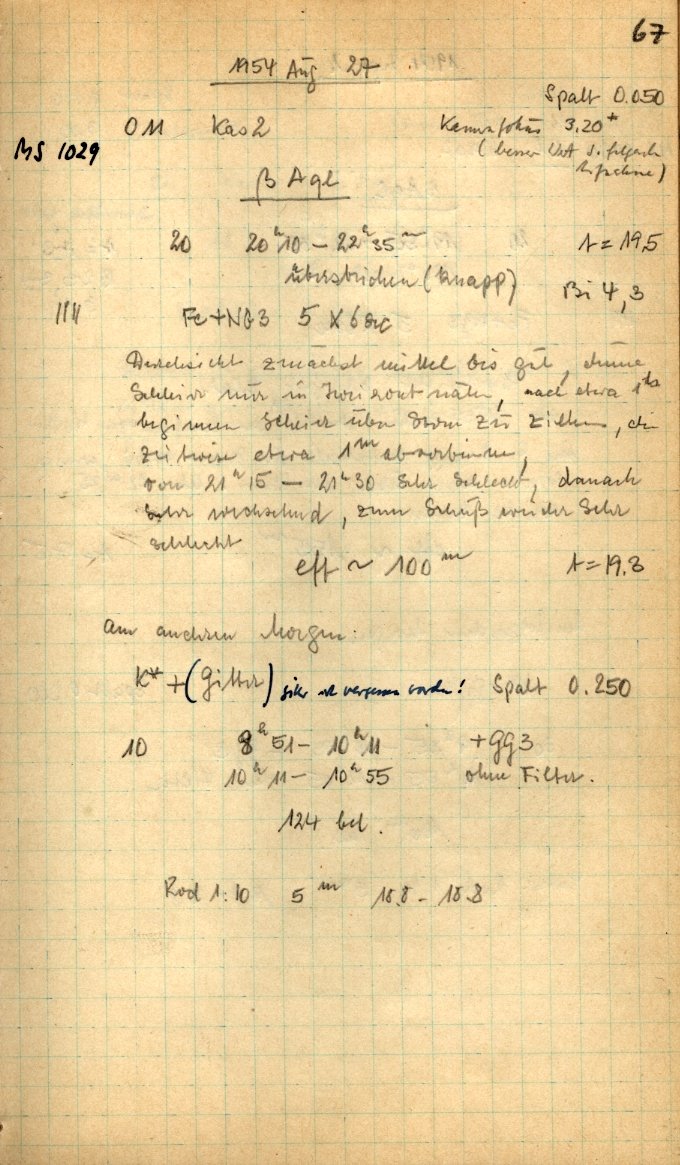 67
1954 Aug 27
Spalt 0.050
O M Kas 2 Kamrafokus 3.20+
MS 1029
(besser Wert s. folgende
Aufnahme)
β Aql
20 20h10 – 22h35m t = 19,5
überstrichen (knapp) Bi 4,3
IIII Fe+NG3 5 × 6 sec
Durchsicht zunächst mittel bis gut, dünne
Schleier nur in Horizontnähe, nach etwa 1h
beginnen Schleier über Stern zu ziehen, die
zeitweise etwa 1m absorbieren,
von 21h15 – 21h30 sehr schlecht, danach
sehr wechselnd, zum Schluß wieder sehr
schlecht
eff ~ 100m t = 19.3
am anderen Morgen:
K* + (Gitter) vergessen worden! Spalt 0.250
10 8h51 – 10h11 +GG3
10h11 – 10h55 ohne Filter.
124 bel.
Rod 1:10 5m 18.8 – 18.8